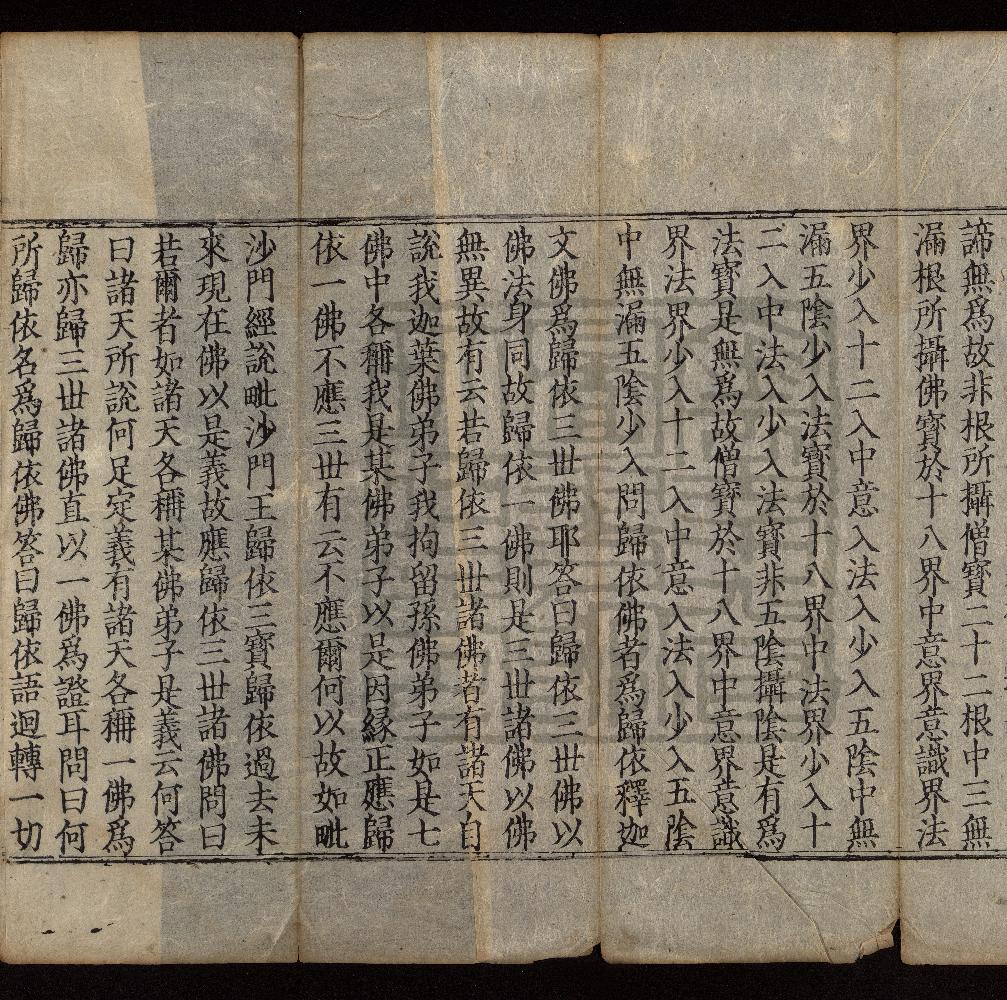 諦無爲故非根所攝僧寳二十二根中三無
漏根所攝佛寳於十八界中意界意識界法
界少入十二入中意入法入少入五陰中無
漏五陰少入法寳於十八界中法界少入十
二入中法入少入法寳非五陰攝陰是有爲
法寳是無爲故僧寳於十八界中意界意識
界法界少入十二入中意入法入少入五陰
中無漏五陰少入問歸依佛者爲歸依釋迦
文佛爲歸依三世佛耶答曰歸依三世佛以
佛法身同故歸依一佛則是三世諸佛以佛
無異故有云若歸依三世諸佛者有諸天自
說我迦葉佛弟子我拘留孫佛弟子如是七
佛中各稱我是某佛弟子以是因緣正應歸
依一佛不應三世有云不應爾何以故如毗
沙門經說毗沙門王歸依三寳歸依過去未
來現在佛以是義故應歸依三世諸佛問曰
若爾者如諸天各稱某佛弟子是義云何答
曰諸天所說何足定義有諸天各稱一佛爲
歸亦歸三世諸佛直以一佛爲證耳問曰何
所歸依名爲歸依佛答曰歸依語迴轉一切